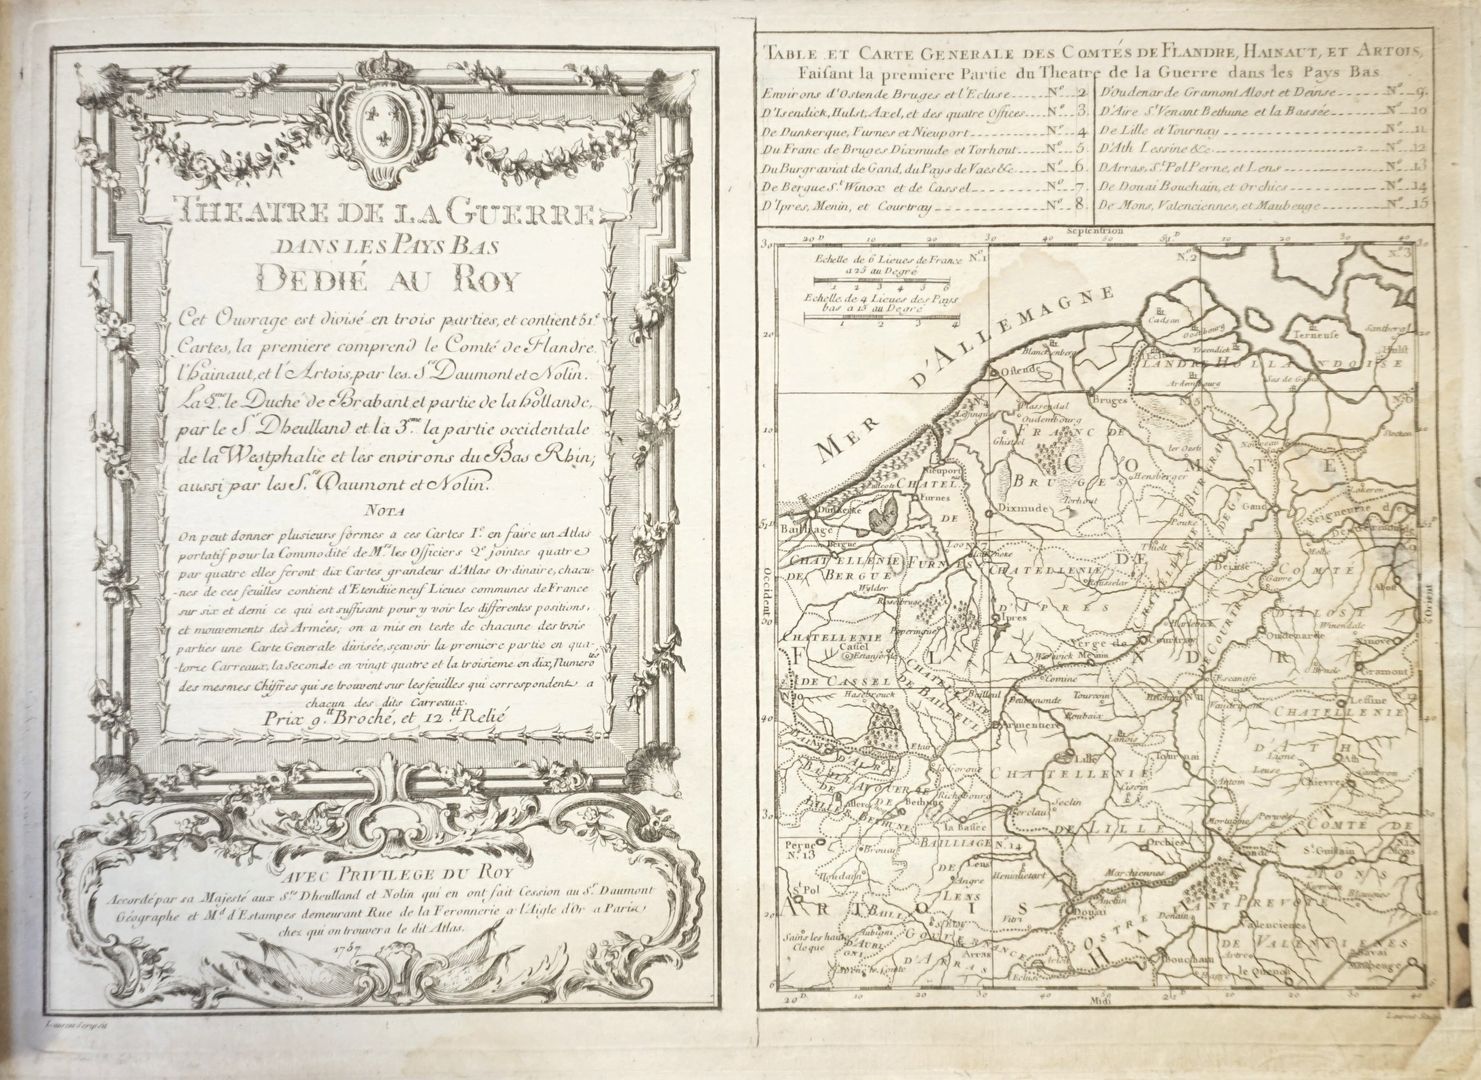 THEATRE DE LA GUERRE
DANS LES PAYS BAS
DEDIÉ AU ROY
Cet Ouvrage est divisé en trois parties, et contient 51.
Cartes, la premiere comprend le Comté de Flandre,
l'hainaut, et l'Artois, par les Srs Daumont et Nolin.
La 2.me le Duché de Brabant et partie de la hollande,
par le Sr. Dheulland et la 3.me la partie occidentale
de la Westphalie et les environs du Bas Rhin;
aussi par les Srs Daumont et Nolin.
NOTA
On peut donner plusieurs formes a ces Cartes 1.º en faire un Atlas
portatif pour la Commodité de Mrs les Officiers 2.º jointes quatre
par quatre elles feront dix Cartes grandeur d'Atlas Ordinaire, chacu-
-nes de ces feuilles contient d'Etendüe neuf Lieues communes de France
sur six et demi ce qui est suffisant pour y voir les differentes positions,
et mouvements des Armées; on a mis en teste de chacune des trois
parties une Carte Generale divisée, sçavoir la premiere partie en qua-
torze Carreaux, la Seconde en vingt quatre et la troisieme en dix, Numerotés
des mesmes Chiffres qui se trouvent sur les feuilles qui correspondent a
chacun des dits Carreaux.
Prix 9.tt Broché, et 12.tt Relié
AVEC PRIVILEGE DU ROY
Accordé par sa Majesté aux Srs Dheulland et Nolin qui en ont fait Cession au Sr. Daumont
Géographe et Md d'Estampes demeurant Rue de la Feronnerie a l'Aigle d'Or a Paris,
chez qui on trouvera le dit Atlas.
1757
TABLE ET CARTE GENERALE DES COMTÉS DE FLANDRE, HAINAUT, ET ARTOIS,
Faisant la premiere Partie du Theatre de la Guerre dans les Pays Bas
Environs d'Ostende Bruges et l'Ecluse No. 2
D'Isendick, Hulst, Axel, et des quatre Offices No. 3
De Dunkerque, Furnes et Nieuport No. 4
Du Franc de Bruges Dixmude et Torhout No. 5
Du Burgraviat de Gand, du Pays de Vaes &c No. 6
De Bergue St. Winox et de Cassel No. 7
D'Ipres, Menin, et Courtray No. 8
D'Oudenarde Gramont Alost et Deinse No. 9
D'Aire St. Venant Bethune et la Bassée No. 10
De Lille et Tournay No. 11
D'Ath Lessine &c No. 12
D'Arras, St. Pol Perne, et Lens No. 13
De Douai Bouchain, et Orchies No. 14
De Mons, Valenciennes, et Maubeuge No. 15
Septentrion
Echelle de 6 Lieues de France
a 25 au Degré
1 2 3 4 5 6
Echelle de 4 Lieues des Pays
bas a 15 au Degré
1 2 3 4
No. 1
No. 2
No. 3
MER D'ALLEMAGNE
Cadsan
Oostbourg
Terneuse
Santberg
Hulst
Ysendick
Blanckenberg
FLANDRE HOLLANDOISE
Ostende
Ardembourg
Sas de Gand
Bruges
Plassendal
Oudembourg
Ghistel
FRANC DE
BRUGES
COMTÉ
Nieuport
CHATEL.
Furnes
Hensberger
Torhout
Dixmude
Dunkerke
Bailliage
Bergue
DE
FURNES
CHATELLENIE
DE BERGUE
Wylder
Rousselar
Thielt
Gand
Deinse
Gavre
Alost
COMTÉ
D'ALOST
CHATELLENIE
D'IPRES
Ipres
Poperingue
Rosebruge
CHATELLENIE
Cassel
DE CASSEL
Hasebrouck
Bailleul
Menin
Courtray
Harlebeck
Oudenarde
Winendale
Ninove
Gramont
FLANDRE
Comine
Tourcoin
Roubaix
Lannoi
Armentiere
Escanafe
Lessine
CHATELLENIE
D'ATH
Ath
Ligne
Leuse
Chievres
Lille
Tournai
Cisoin
Seclin
CHATELLENIE
DE LILLE
Richebourg
Bethune
la Bassée
Orchies
Mortagne
Antoin
COMTÉ DE
MONS
Mons
St. Guislain
Perne
No. 13
BAILLIAGE
DE
LENS
Lens
No. 14
Houdain
St. Pol
ARTOIS
Marchiennes
Douai
Denain
Valenciennes
PREVOTÉ
DE VALENCIENNES
Bavai
Maubeuge
le Quenoi
Bouchain
Vitri
Aubigni
Arras
GOUVERNANCE
D'ARRAS
OSTREVANT
HAINAUT
Occident
Orient
Midi